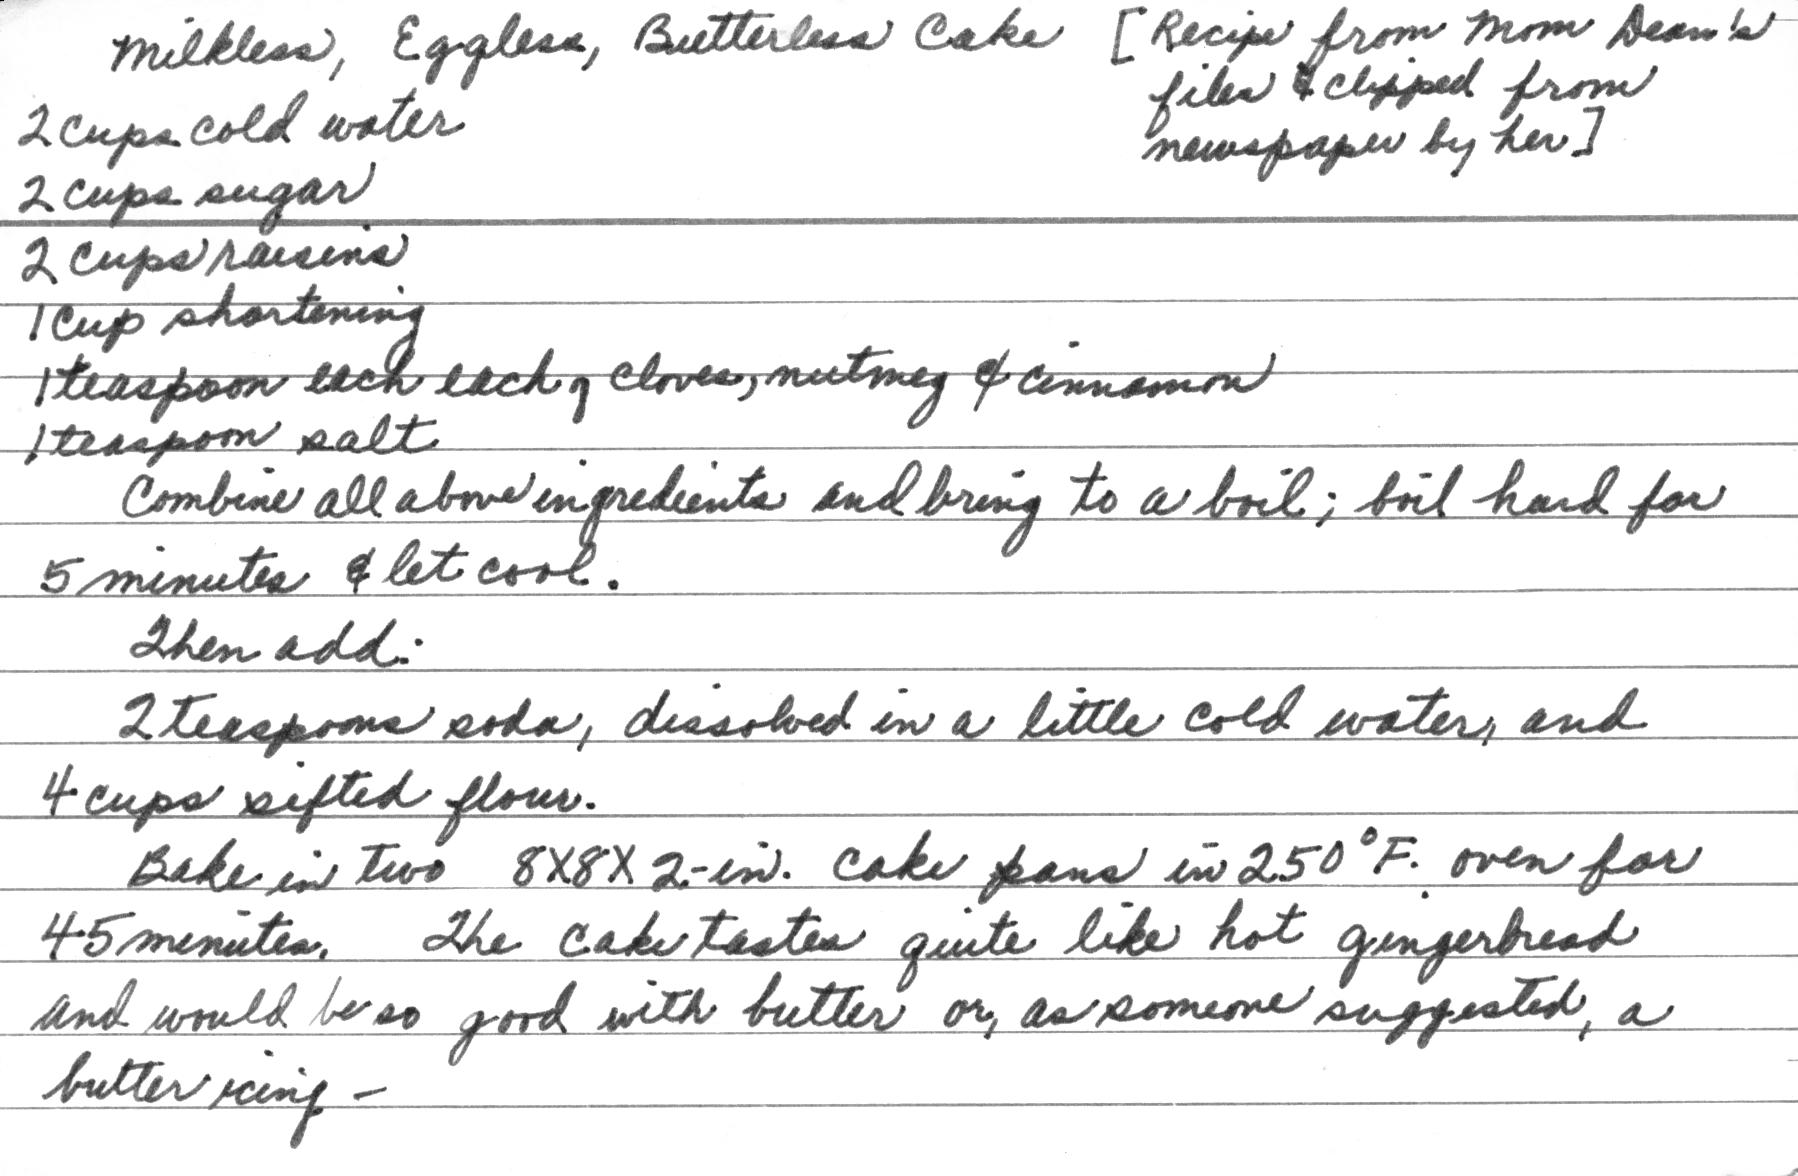 Milkless, Eggless, Butterless Cake [Recipe from Mom Dean's
files & clipped from
newspaper by her]
2 cups cold water
2 cups sugar
2 cups raisins
1 cup shortening
1 teaspoon each each of cloves, nutmeg & cinnamon
1 teaspoon salt
Combine all above ingredients and bring to a boil; boil hard for
5 minutes & let cool.
Then add:
2 teaspoons soda, dissolved in a little cold water, and
4 cups sifted flour.
Bake in two 8X8X2-in. cake pans in 250°F. oven for
45 minutes. The cake tastes quite like hot gingerbread
and would be so good with butter or, as someone suggested, a
butter icing –